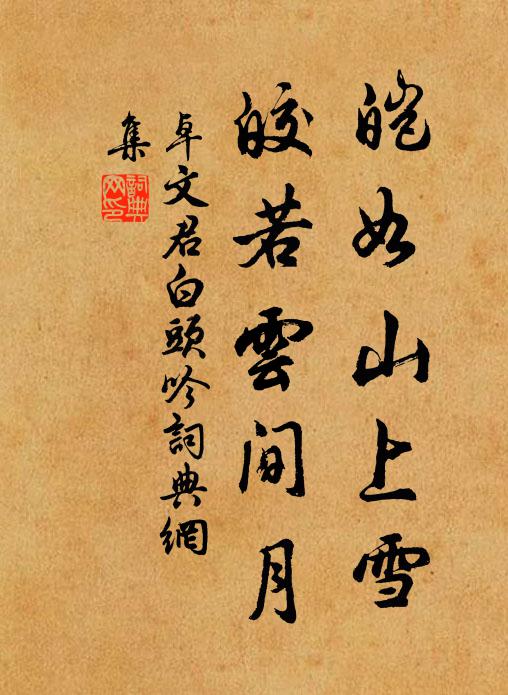 皚如山上雪
皎若雲間月
卓文君白頭吟詞典網
集
詞典
网印